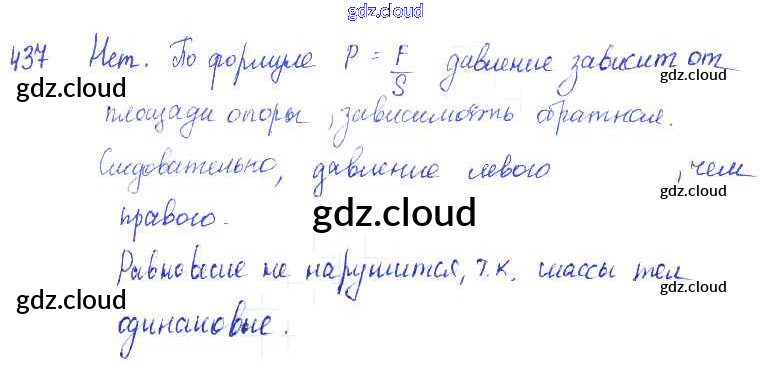 gdz.cloud
437 Нет. По формуле P = F/S давление зависит от
gdz.cloud gdz.cloud
площади опоры, зависимость обратная.
gdz.cloud
Следовательно, давление левого , чем
gdz.cloud
правого.
gdz.cloud
Равновесие не нарушится, т.к. массы тел
gdz.cloud gdz.cloud
одинаковые.